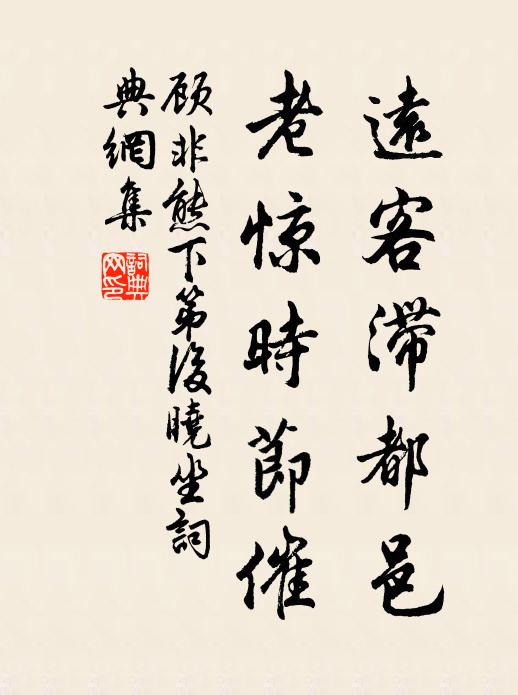 遠客滞都邑
老惊時節催
顾非熊下第後曉坐詞
典網集
詞典網印